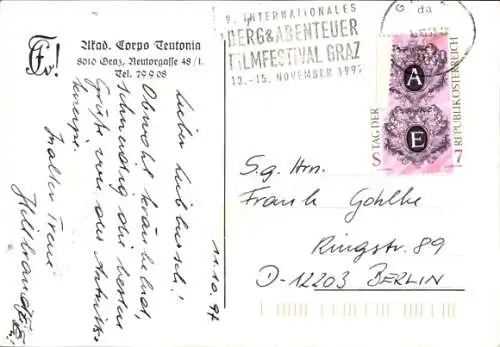 Akad. Corps Teutonia
8010 Graz, Neutorgasse 48/I.
Tel. 79 9 08
11.10.97
Lieber Leibbursch!
Obwohl kränkelnd,
schneidig die besten
Grüße von der Antritts-
kneipe.
In alter Treue
Hildebrandt
9. INTERNATIONALES
BERG&ABENTEUER
FILMFESTIVAL GRAZ
13.-15. NOVEMBER 1997
S TAG DER
A
E
REPUBLIK ÖSTERREICH
7
S.g. Hrn.
Frank Gohlke
Ringstr. 89
D-12203 BERLIN